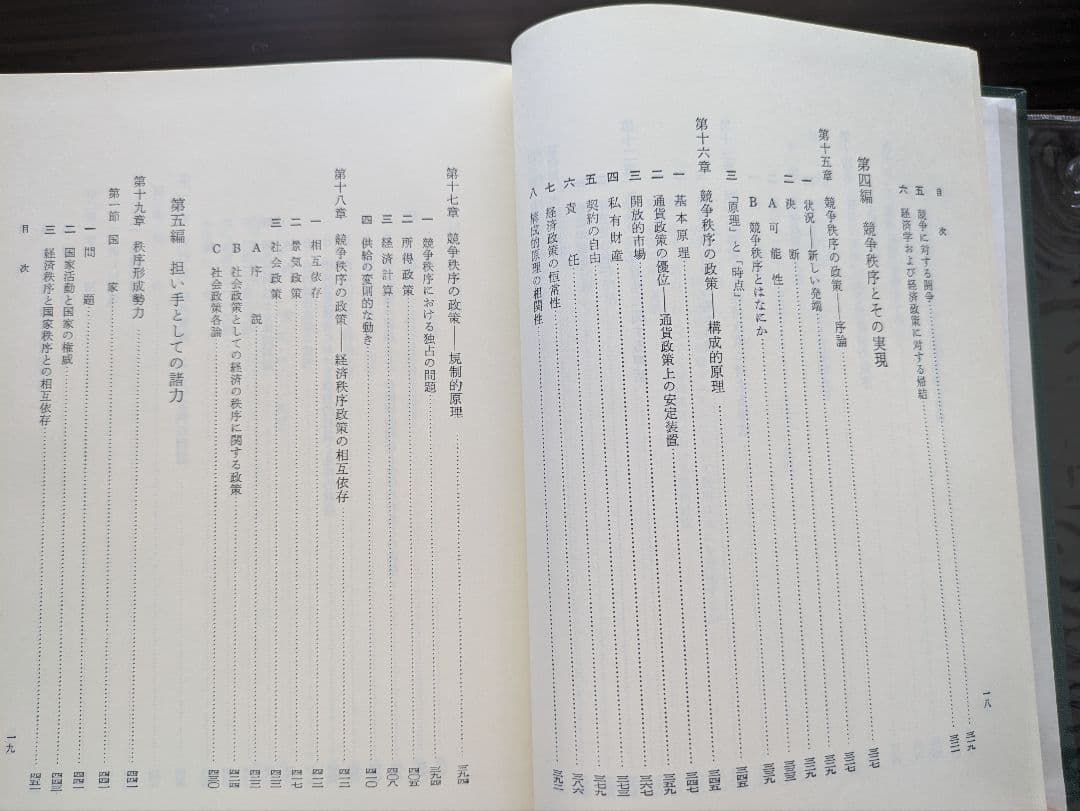 目次 一八
五 競争に対する闘争 三一九
六 経済学および経済政策に対する帰結 三二一
第四編 競争秩序とその実現 三二七
第十五章 競争秩序の政策――序論 三二七
一 状況――新しい発端 三二九
二 決断 三二九
A 可能性 三三〇
B 競争秩序とはなにか 三三九
三 「原理」と「時点」 三四五
第十六章 競争秩序の政策――構成的原理 三四五
一 基本原理 三四七
二 通貨政策の優位――通貨政策上の安定装置 三五九
三 開放的市場 三六七
四 私有財産 三七三
五 契約の自由 三七九
六 責任 三八六
七 経済政策の恒常性 三九二
八 構成的原理の相関性
第十七章 競争秩序の政策――規制的原理 三九四
一 競争秩序における独占の問題 三九四
二 所得政策 四〇五
三 経済計算 四〇八
四 供給の変則的な動き 四一〇
第十八章 競争秩序の政策――経済秩序政策の相互依存 四一二
一 相互依存 四一二
二 景気政策 四一七
三 社会政策 四二三
A 序説 四二三
B 社会政策としての経済の秩序に関する政策 四二四
C 社会政策各論 四三〇
第五編 担い手としての諸力
第十九章 秩序形成勢力 四四一
第一節 国家 四四一
一 問題 四四一
二 国家活動と国家の権威
三 経済秩序と国家秩序との相互依存 四五一
目次 一九